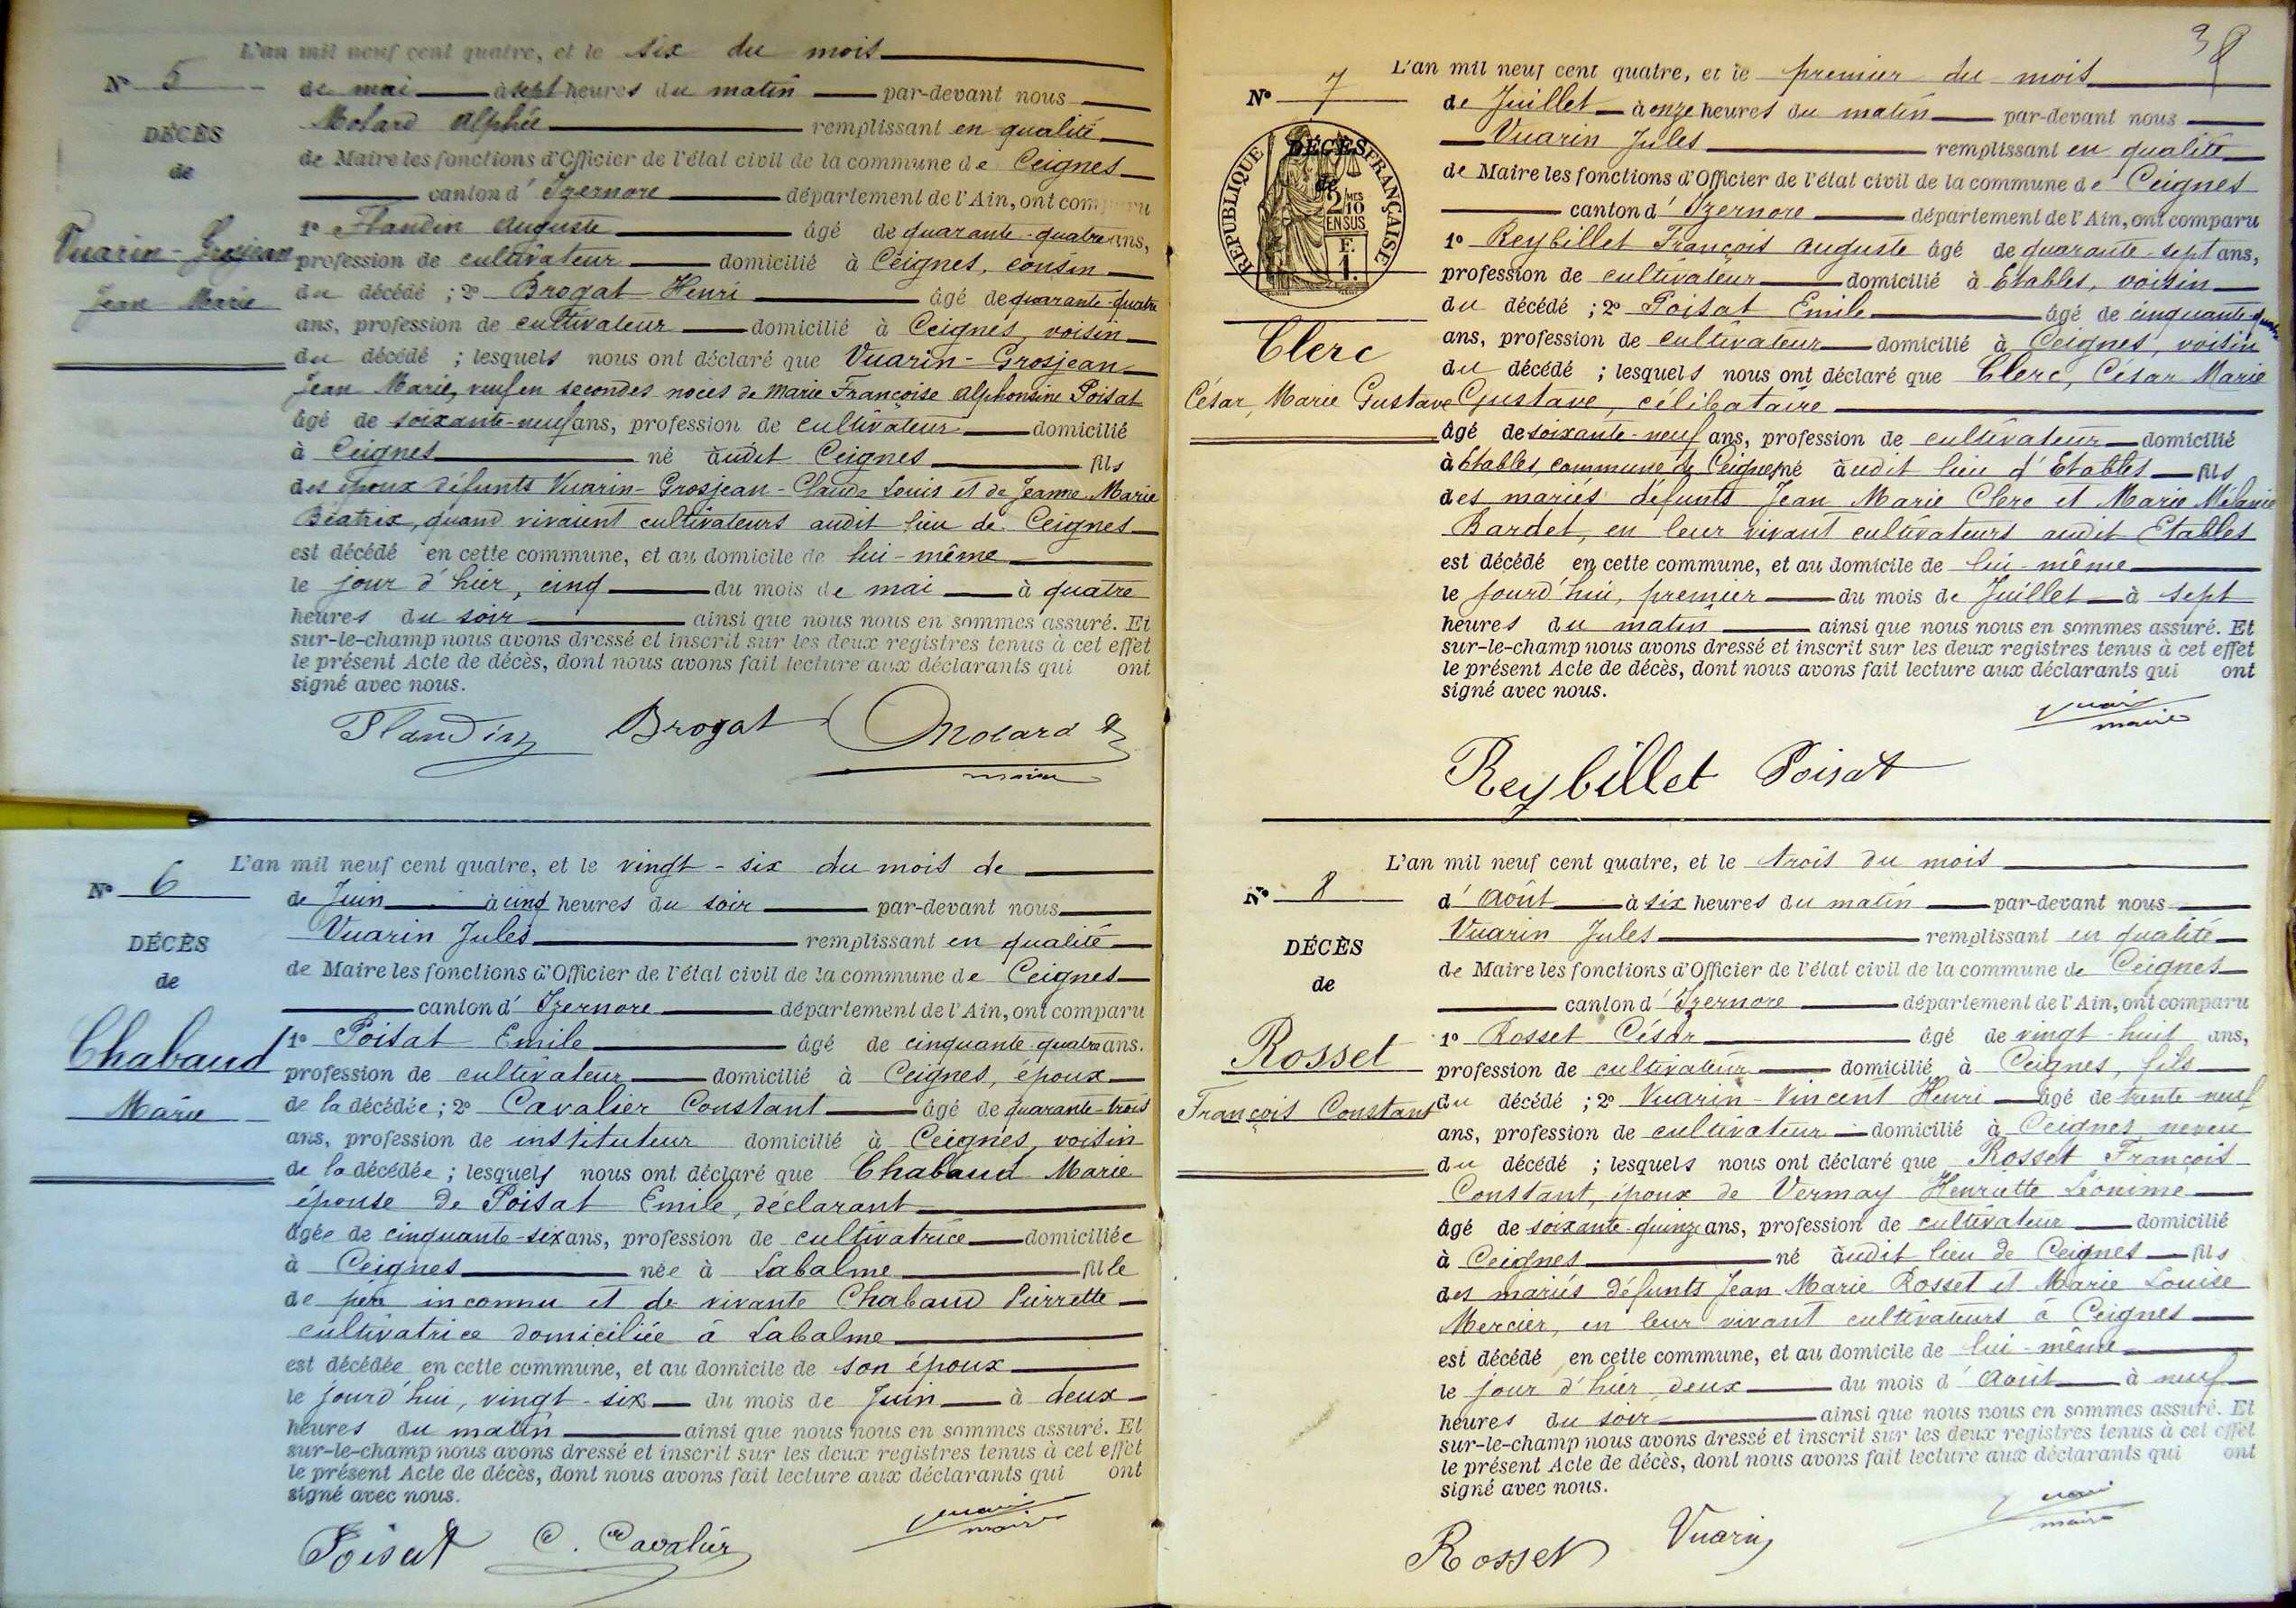 L'an mil neuf cent quatre, et le six du mois
N° 5
de mai à sept heures du matin par-devant nous
DÉCÈS
de
Vuarin - Grosjean
Jean Marie
Molard Alphée remplissant en qualité
de Maire les fonctions d'Officier de l'état civil de la commune de Ceignes
canton d'Izernore département de l'Ain, ont comparu
1° Flandin Auguste âgé de quarante-quatre ans,
profession de cultivateur domicilié à Ceignes, cousin
du décédé ; 2° Brogat Henri âgé de quarante-quatre
ans, profession de cultivateur domicilié à Ceignes, voisin
du décédé ; lesquels nous ont déclaré que Vuarin - Grosjean
Jean Marie, veuf en secondes noces de Marie Françoise Alphonsine Poisat
âgé de soixante-neuf ans, profession de cultivateur domicilié
à Ceignes né audit Ceignes fils
des époux défunts Vuarin - Grosjean - Claude Louis et de Jeanne Marie
Béatrix, quand vivaient cultivateurs audit lieu de Ceignes
est décédé en cette commune, et au domicile de lui-même
le jour d'hier, cinq du mois de mai à quatre
heures du soir ainsi que nous nous en sommes assuré. Et
sur-le-champ nous avons dressé et inscrit sur les deux registres tenus à cet effet
le présent Acte de décès, dont nous avons fait lecture aux déclarants qui ont
signé avec nous.
Flandin Brogat Molard A
maire
L'an mil neuf cent quatre, et le vingt-six du mois de
N° 6
de Juin à cinq heures du soir par-devant nous
DÉCÈS
de
Chabaud
Marie
Vuarin Jules remplissant en qualité
de Maire les fonctions d'Officier de l'état civil de la commune de Ceignes
canton d'Izernore département de l'Ain, ont comparu
1° Poisat Emile âgé de cinquante-quatre ans.
profession de cultivateur domicilié à Ceignes, époux
de la décédée ; 2° Cavalier Constant âgé de quarante-trois
ans, profession de instituteur domicilié à Ceignes, voisin
de la décédée ; lesquels nous ont déclaré que Chabaud Marie
épouse de Poisat Emile, déclarant
âgée de cinquante-six ans, profession de cultivatrice domiciliée
à Ceignes née à Labalme fille
de père inconnu et de vivante Chabaud Pierrette
cultivatrice domiciliée à Labalme
est décédée en cette commune, et au domicile de son époux
le jourd'hui, vingt-six du mois de Juin à deux
heures du matin ainsi que nous nous en sommes assuré. Et
sur-le-champ nous avons dressé et inscrit sur les deux registres tenus à cet effet
le présent Acte de décès, dont nous avons fait lecture aux déclarants qui ont
signé avec nous.
Poisat C. Cavalier Vuarin
maire
38
L'an mil neuf cent quatre, et le premier du mois
N° 7
de Juillet à onze heures du matin par-devant nous
DÉCÈS
de
RÉPUBLIQUE FRANÇAISE
2/10 MES
EN SUS
F.
1.
Clerc
César, Marie Gustave
Vuarin Jules remplissant en qualité
de Maire les fonctions d'Officier de l'état civil de la commune de Ceignes
canton d'Izernore département de l'Ain, ont comparu
1° Reybillet François Auguste âgé de quarante-sept ans,
profession de cultivateur domicilié à Etables, voisin
du décédé ; 2° Poisat Emile âgé de cinquante-quatre
ans, profession de cultivateur domicilié à Ceignes, voisin
du décédé ; lesquels nous ont déclaré que Clerc, César Marie
Gustave, célibataire
âgé de soixante-neuf ans, profession de cultivateur domicilié
à Etables, commune de Ceignes né audit lieu d'Etables fils
des mariés défunts Jean Marie Clerc et Marie Mélanie
Bardet, en leur vivant cultivateurs audit Etables
est décédé en cette commune, et au domicile de lui-même
le jourd'hui, premier du mois de Juillet à sept
heures du matin ainsi que nous nous en sommes assuré. Et
sur-le-champ nous avons dressé et inscrit sur les deux registres tenus à cet effet
le présent Acte de décès, dont nous avons fait lecture aux déclarants qui ont
signé avec nous.
Vuarin
maire
Reybillet Poisat
L'an mil neuf cent quatre, et le trois du mois
N° 8
d'Août à six heures du matin par-devant nous
DÉCÈS
de
Rosset
François Constant
Vuarin Jules remplissant en qualité
de Maire les fonctions d'Officier de l'état civil de la commune de Ceignes
canton d'Izernore département de l'Ain, ont comparu
1° Rosset César âgé de vingt-huit ans,
profession de cultivateur domicilié à Ceignes, fils
du décédé ; 2° Vuarin - Vincent Henri âgé de trente-neuf
ans, profession de cultivateur domicilié à Ceignes neveu
du décédé ; lesquels nous ont déclaré que Rosset François
Constant, époux de Vermay Henriette Léonime
âgé de soixante-quinze ans, profession de cultivateur domicilié
à Ceignes né audit lieu de Ceignes fils
des mariés défunts Jean Marie Rosset et Marie Louise
Mercier, en leur vivant cultivateurs à Ceignes
est décédé en cette commune, et au domicile de lui-même
le jour d'hier deux du mois d'Août à neuf
heures du soir ainsi que nous nous en sommes assuré. Et
sur-le-champ nous avons dressé et inscrit sur les deux registres tenus à cet effet
le présent Acte de décès, dont nous avons fait lecture aux déclarants qui ont
signé avec nous.
Vuarin
maire
Rosset Vuarin